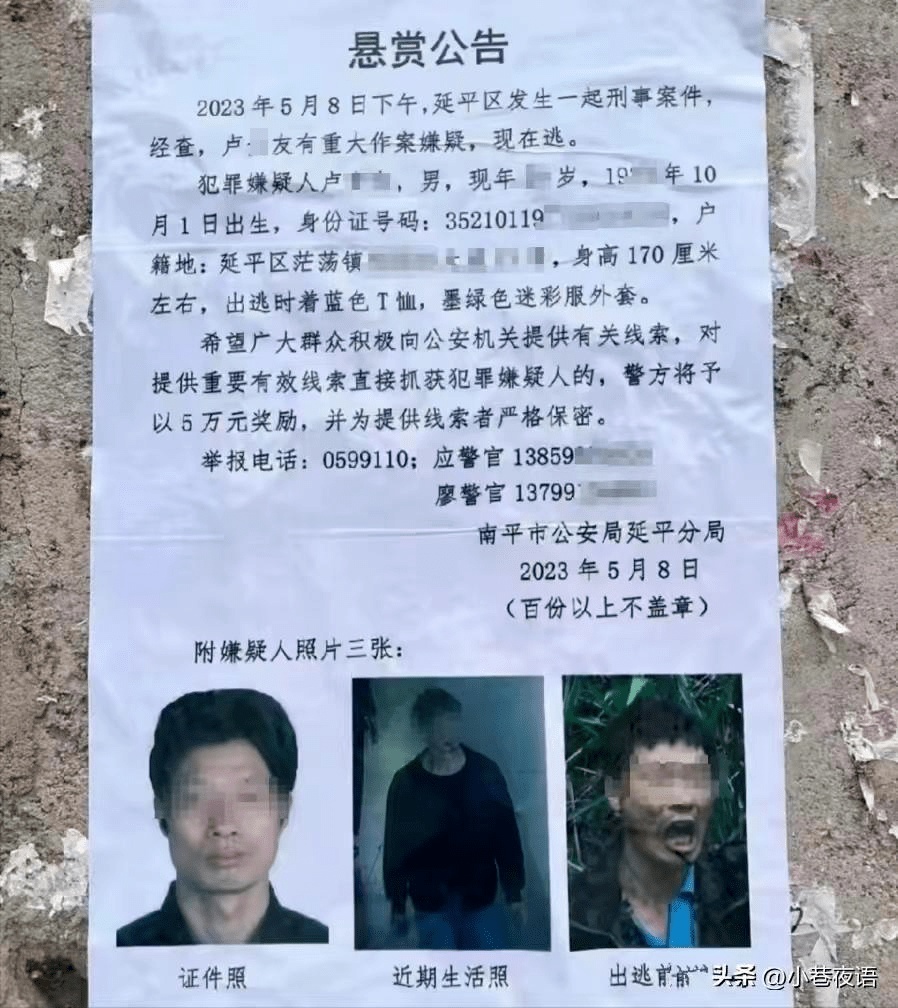 悬赏公告
2023年5月8日下午,延平区发生一起刑事案件,
经查,卢 友有重大作案嫌疑,现在逃。
犯罪嫌疑人卢 ,男,现年 岁,19 年10
月1日出生,身份证号码:35210119 ,户
籍地:延平区茫荡镇 ,身高170厘米
左右,出逃时着蓝色T恤,墨绿色迷彩服外套。
希望广大群众积极向公安机关提供有关线索,对
提供重要有效线索直接抓获犯罪嫌疑人的,警方将予
以5万元奖励,并为提供线索者严格保密。
举报电话:0599110;应警官 13859
廖警官 13799
南平市公安局延平分局
2023年5月8日
(百份以上不盖章)
附嫌疑人照片三张:
证件照 近期生活照 出逃前
头条 @小巷夜语